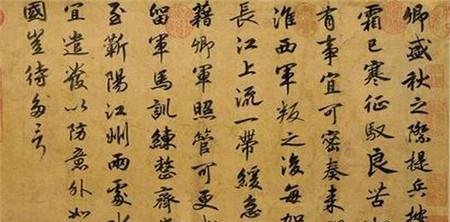 卿盛秋之際提兵按
霜已寒征馭良苦
有事宜可密奏來
淮西軍叛之後每加
長江上流一帶緩急
藉卿軍照管可更
留軍馬訓練整齊
至蘄陽江州兩處水
宜遣發以防意外如
國豈待多言